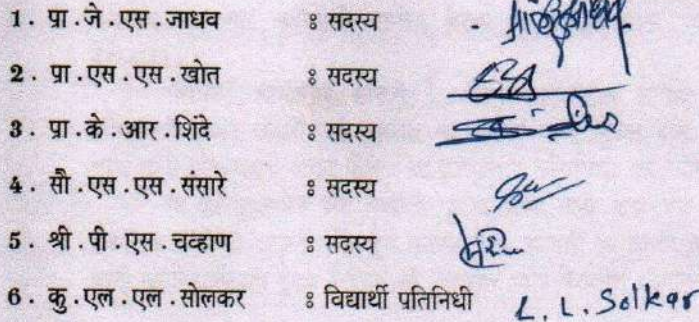 1. प्रा.जे.एस.जाधव : सदस्य -
2. प्रा.एस.एस.खोत : सदस्य
3. प्रा.के.आर.शिंदे : सदस्य
4. सौ.एस.एस.संसारे : सदस्य
5. श्री.पी.एस.चव्हाण : सदस्य
6. कु.एल.एल.सोलकर : विद्यार्थी प्रतिनिधी L. L. Solkar